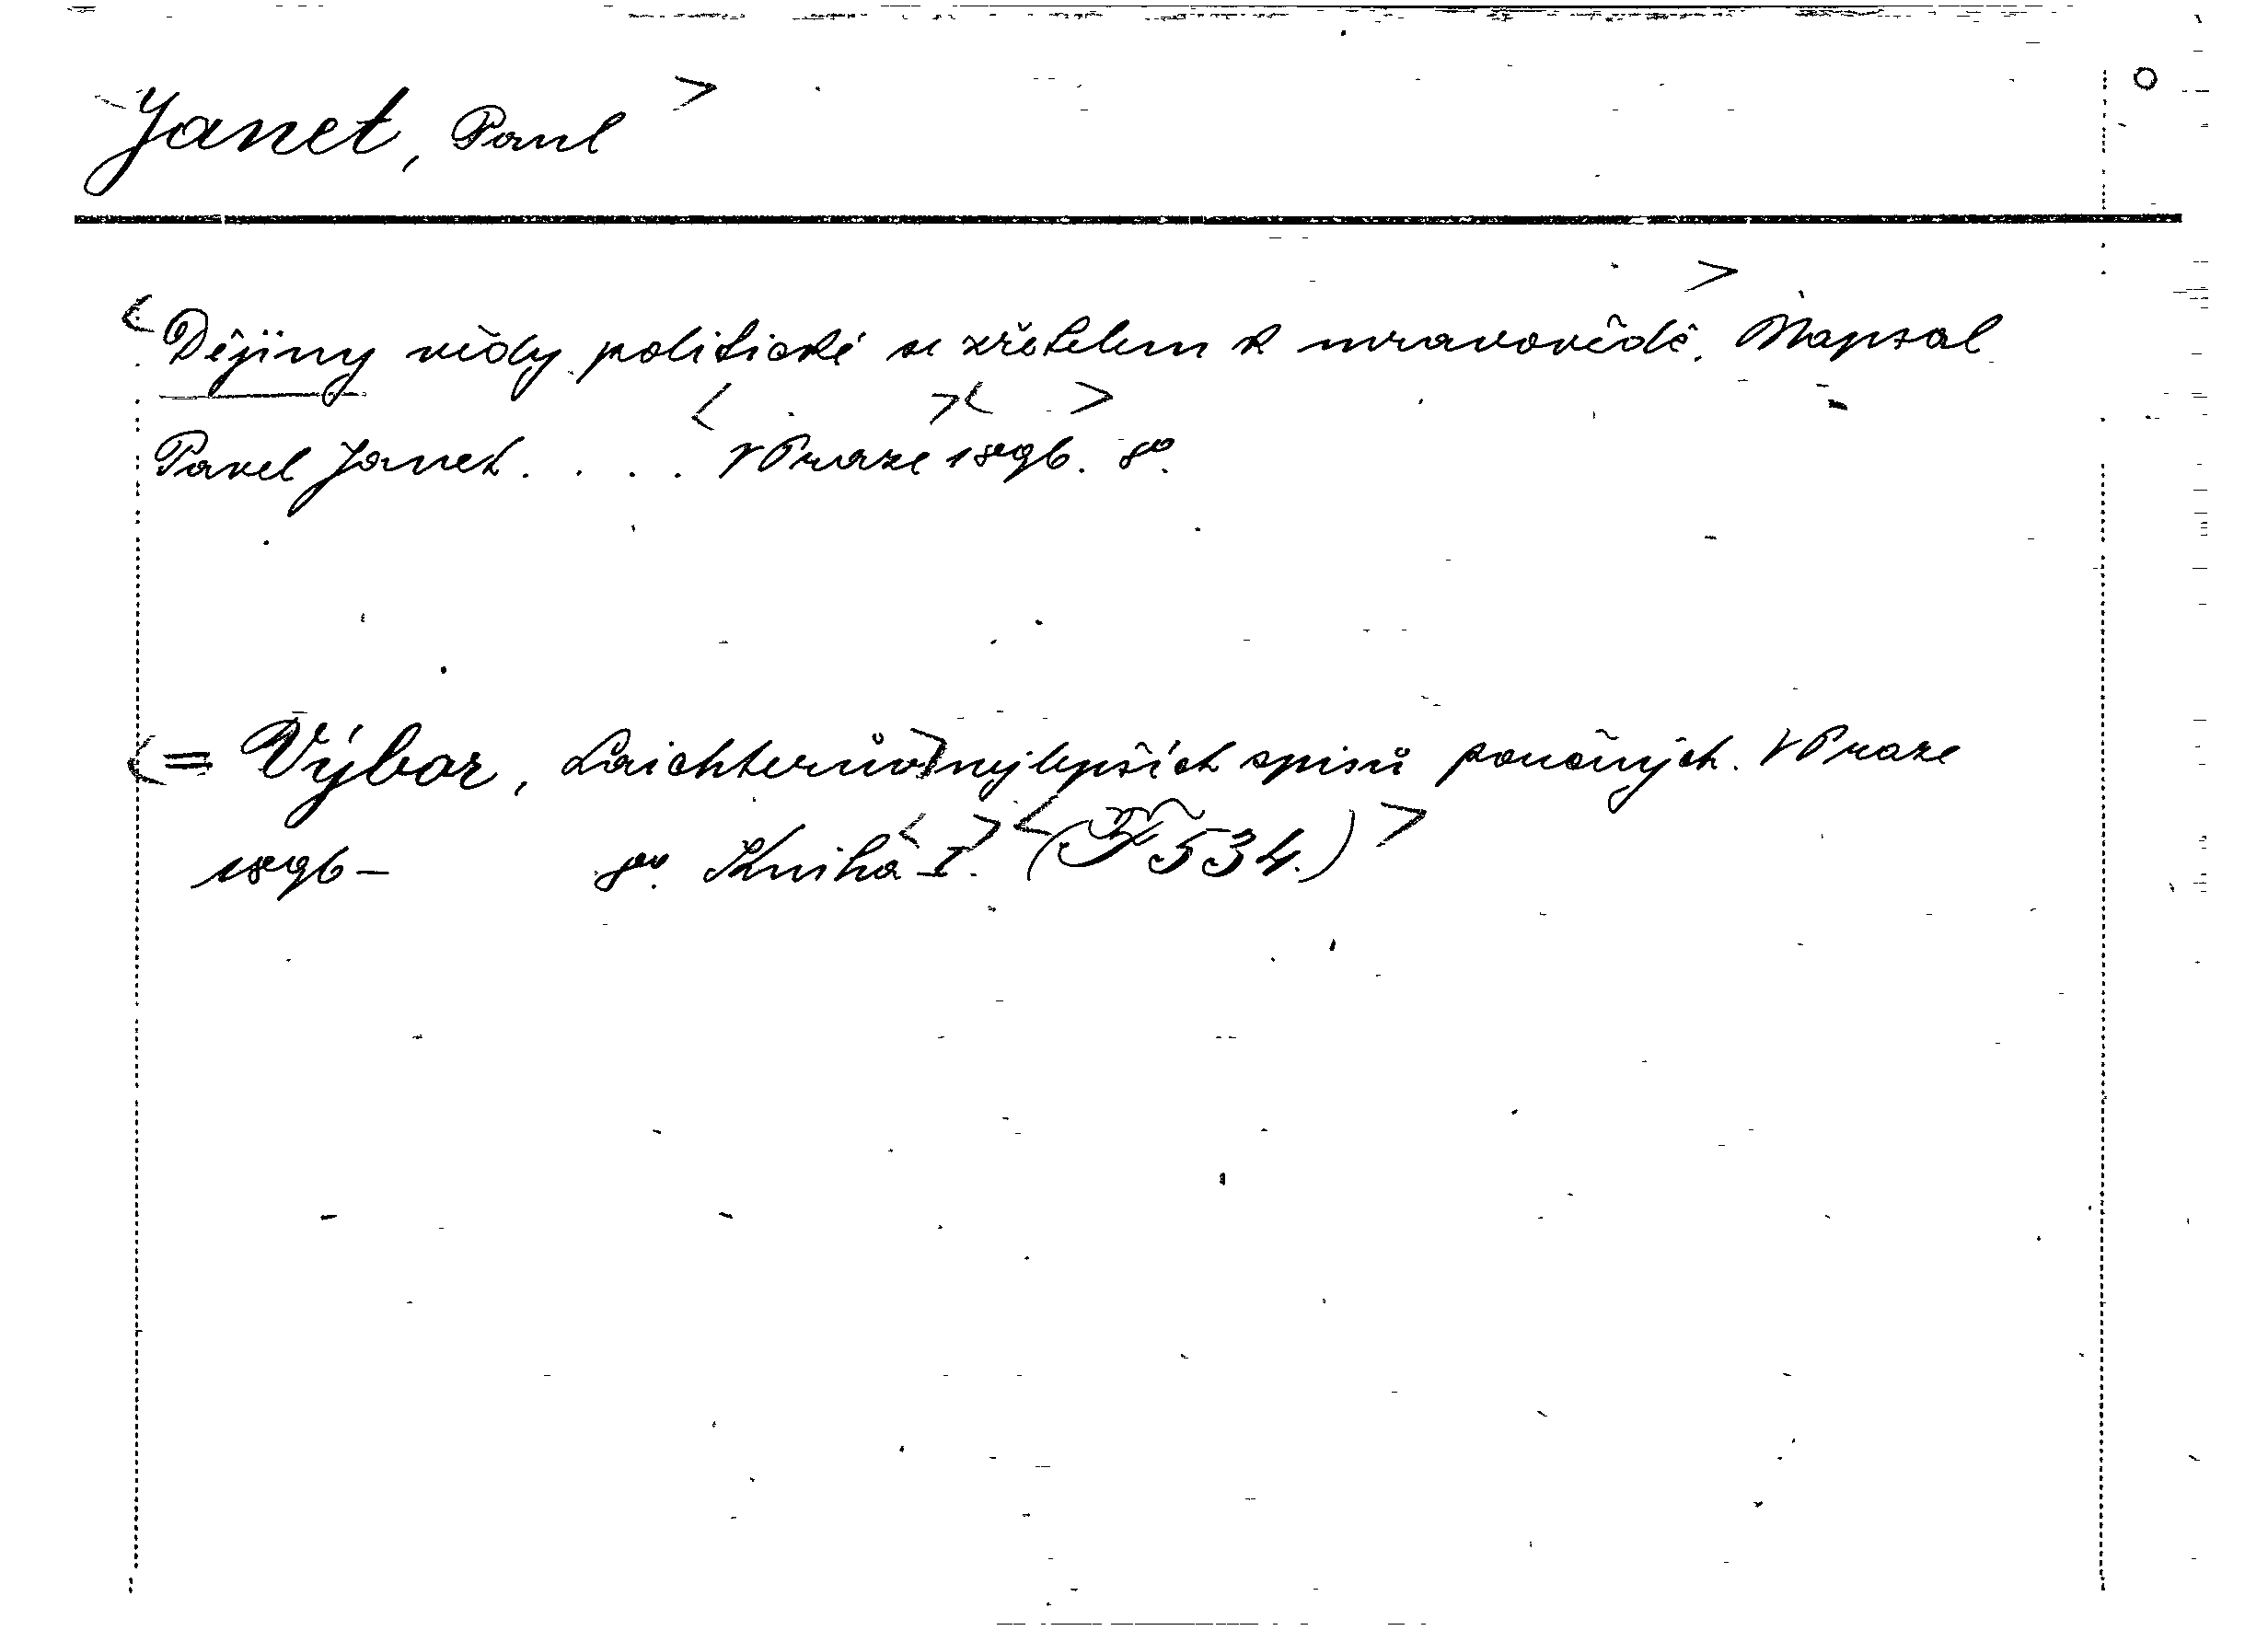 Janet, Paul >
< Dějiny vědy politické se zřetelem k mravovědě. > Napsal
Pavel Janet. . . . < V Praze >< 1896. > 8º.
< = Výbor, Laichterův > nejlepších spisů poučných. V Praze
1896 – 8º. Kniha < I. > < (F 534.) >